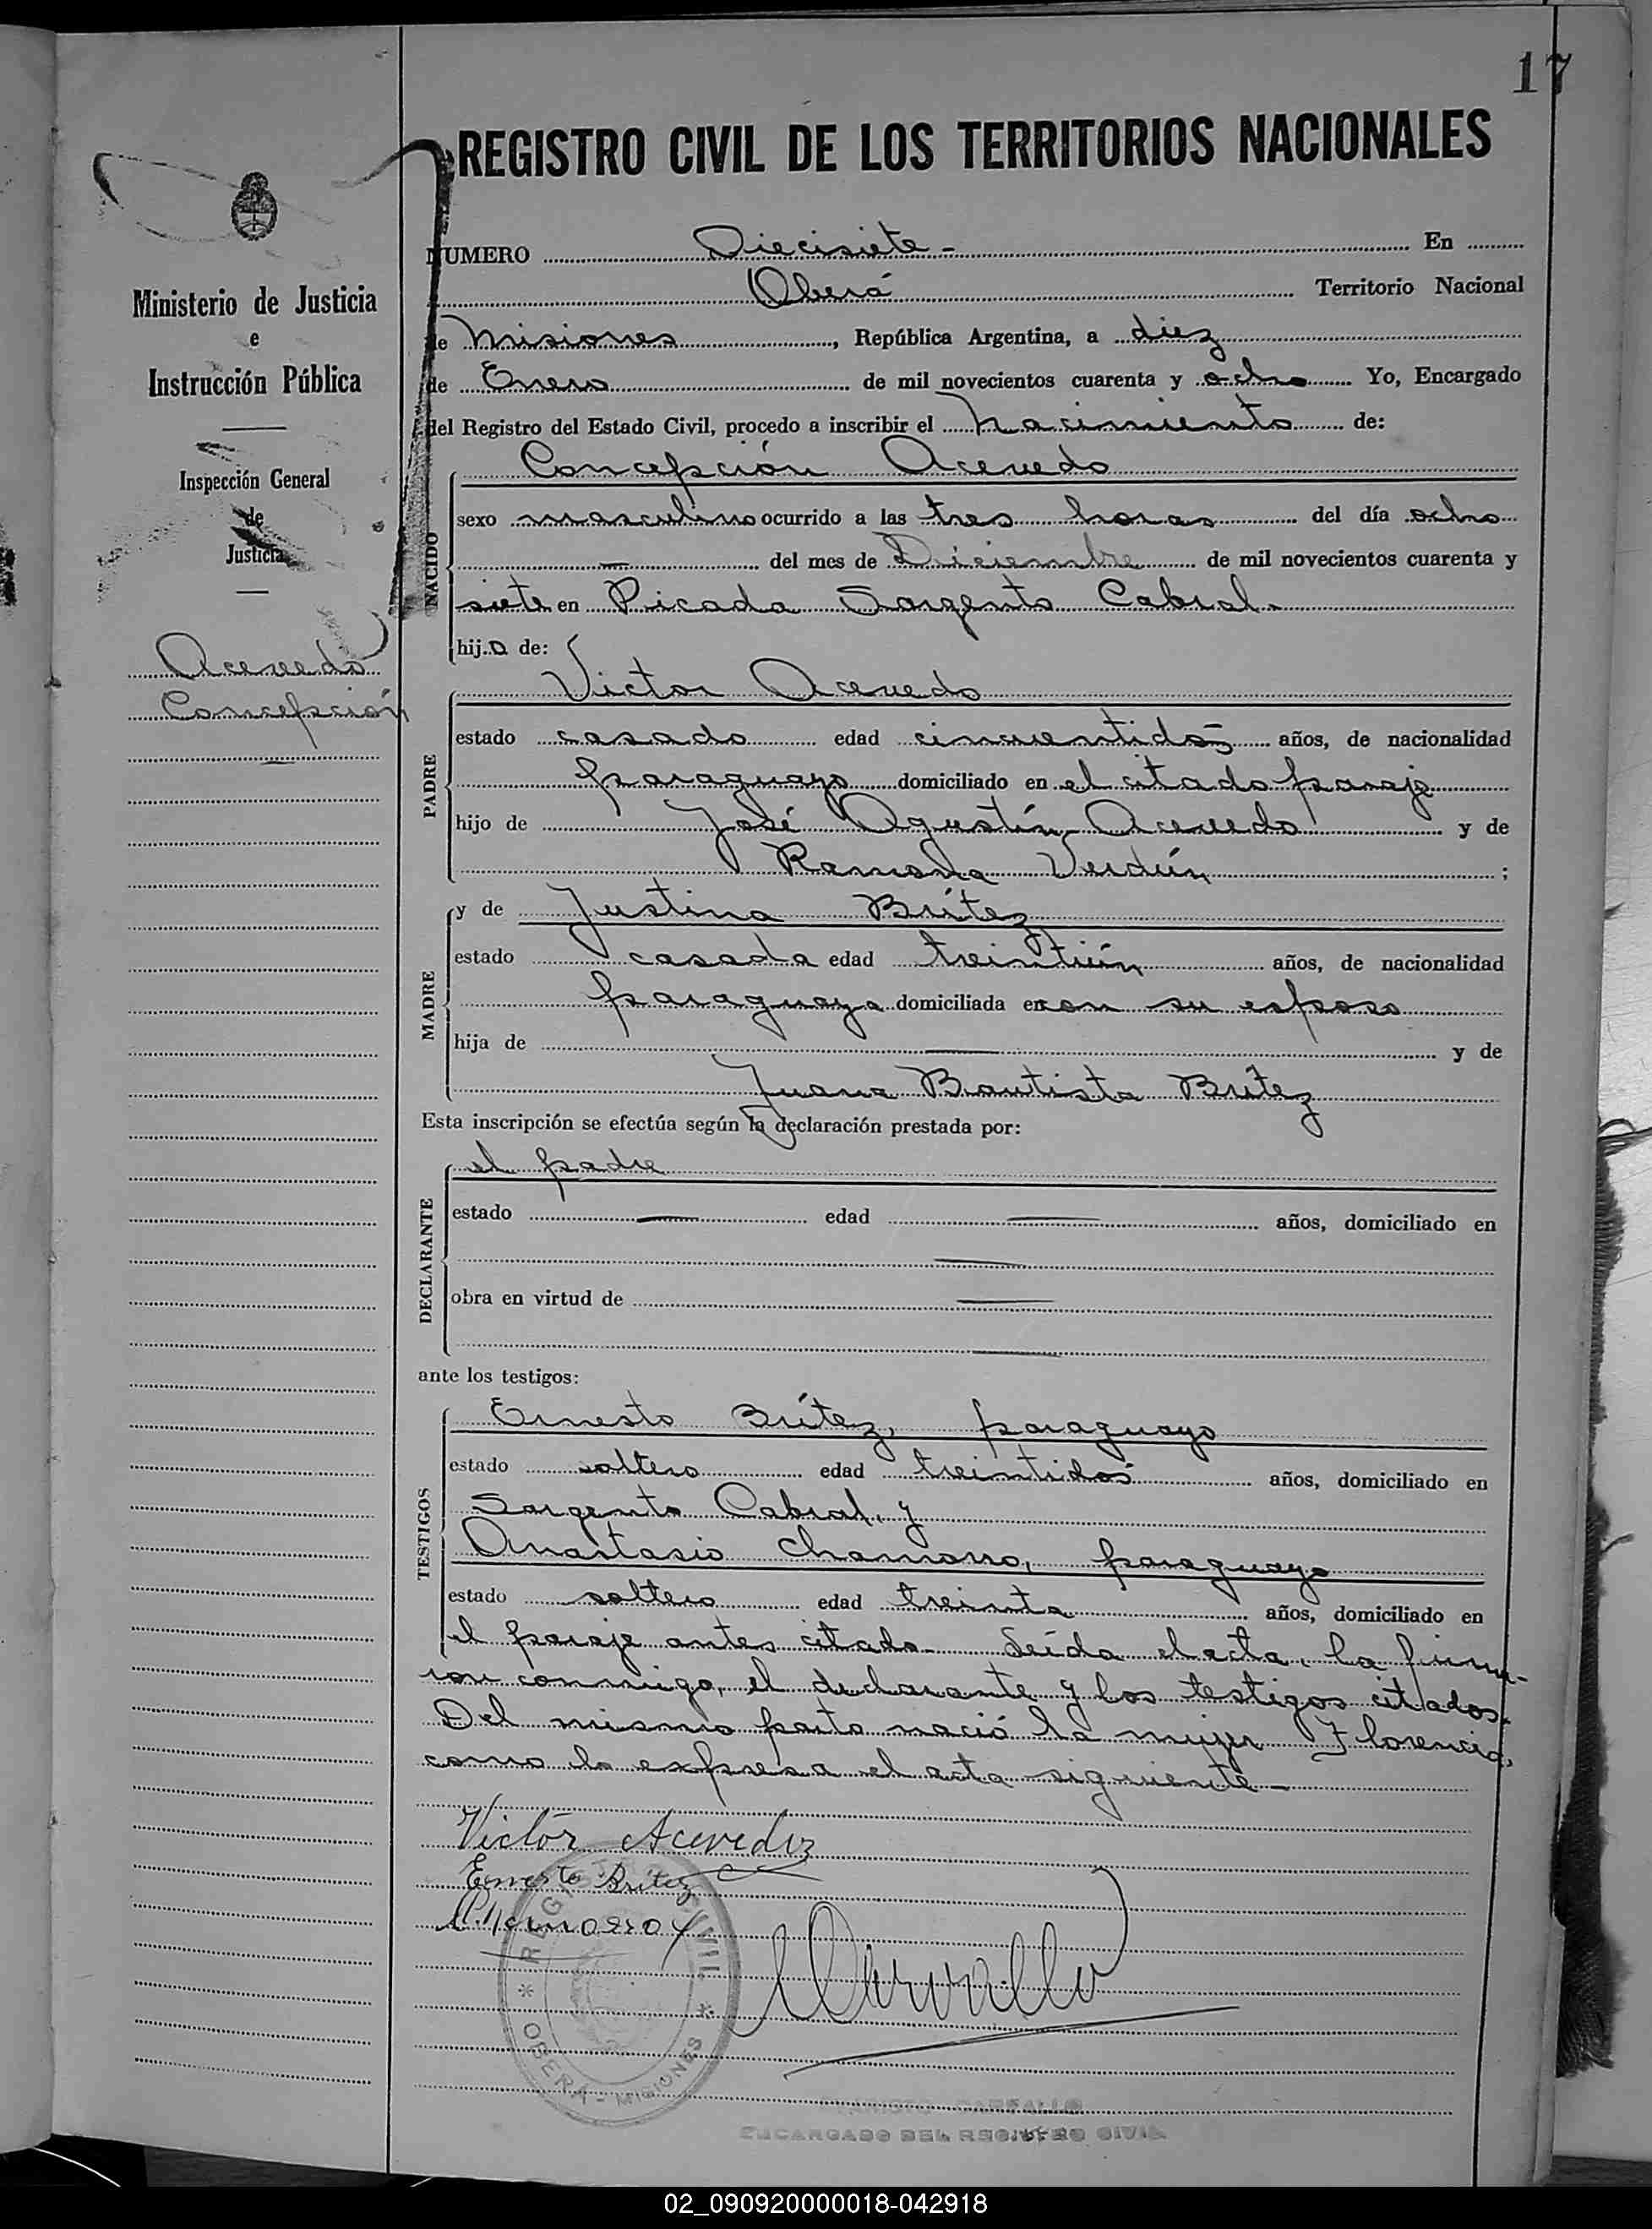 17
REGISTRO CIVIL DE LOS TERRITORIOS NACIONALES
Ministerio de Justicia
e
Instrucción Pública
Inspección General
de
Justicia
Acevedo
Concepción
NUMERO Diecisiete - En
Oberá Territorio Nacional
de Misiones, República Argentina, a diez
de Enero de mil novecientos cuarenta y ocho Yo, Encargado
del Registro del Estado Civil, procedo a inscribir el nacimiento de:
NACIDO
Concepción Acevedo
sexo masculino ocurrido a las tres horas del día ocho
— del mes de Diciembre de mil novecientos cuarenta y
siete en Picada Sargento Cabral.
hijo de:
PADRE
Victor Acevedo
estado casado edad cincuentidós años, de nacionalidad
paraguayo domiciliado en el citado paraje
hijo de José Agustín Acevedo y de
Ramona Verdún ;
MADRE
y de Justina Brítez
estado casada edad treintiún años, de nacionalidad
paraguaya domiciliada con su esposo
hija de — y de
Juana Bautista Brítez
Esta inscripción se efectúa según la declaración prestada por:
DECLARANTE
el padre
estado — edad — años, domiciliado en
—
obra en virtud de —
—
ante los testigos:
TESTIGOS
Ernesto Brítez, paraguayo
estado soltero edad treintidós años, domiciliado en
Sargento Cabral, y
Anastasio Chamorro, paraguayo
estado soltero edad treinta años, domiciliado en
el paraje antes citado. Leída el acta, la firma-
ron conmigo, el declarante y los testigos citados.
Del mismo parto nació la mujer Florencia,
como lo expresa el acta siguiente -
Victor Acevedo
Ernesto Brítez
REGISTRO CIVIL * OBERÁ - MISIONES *
CARBALLO
ENCARGADO DEL REGISTRO CIVIL
02_090920000018-042918